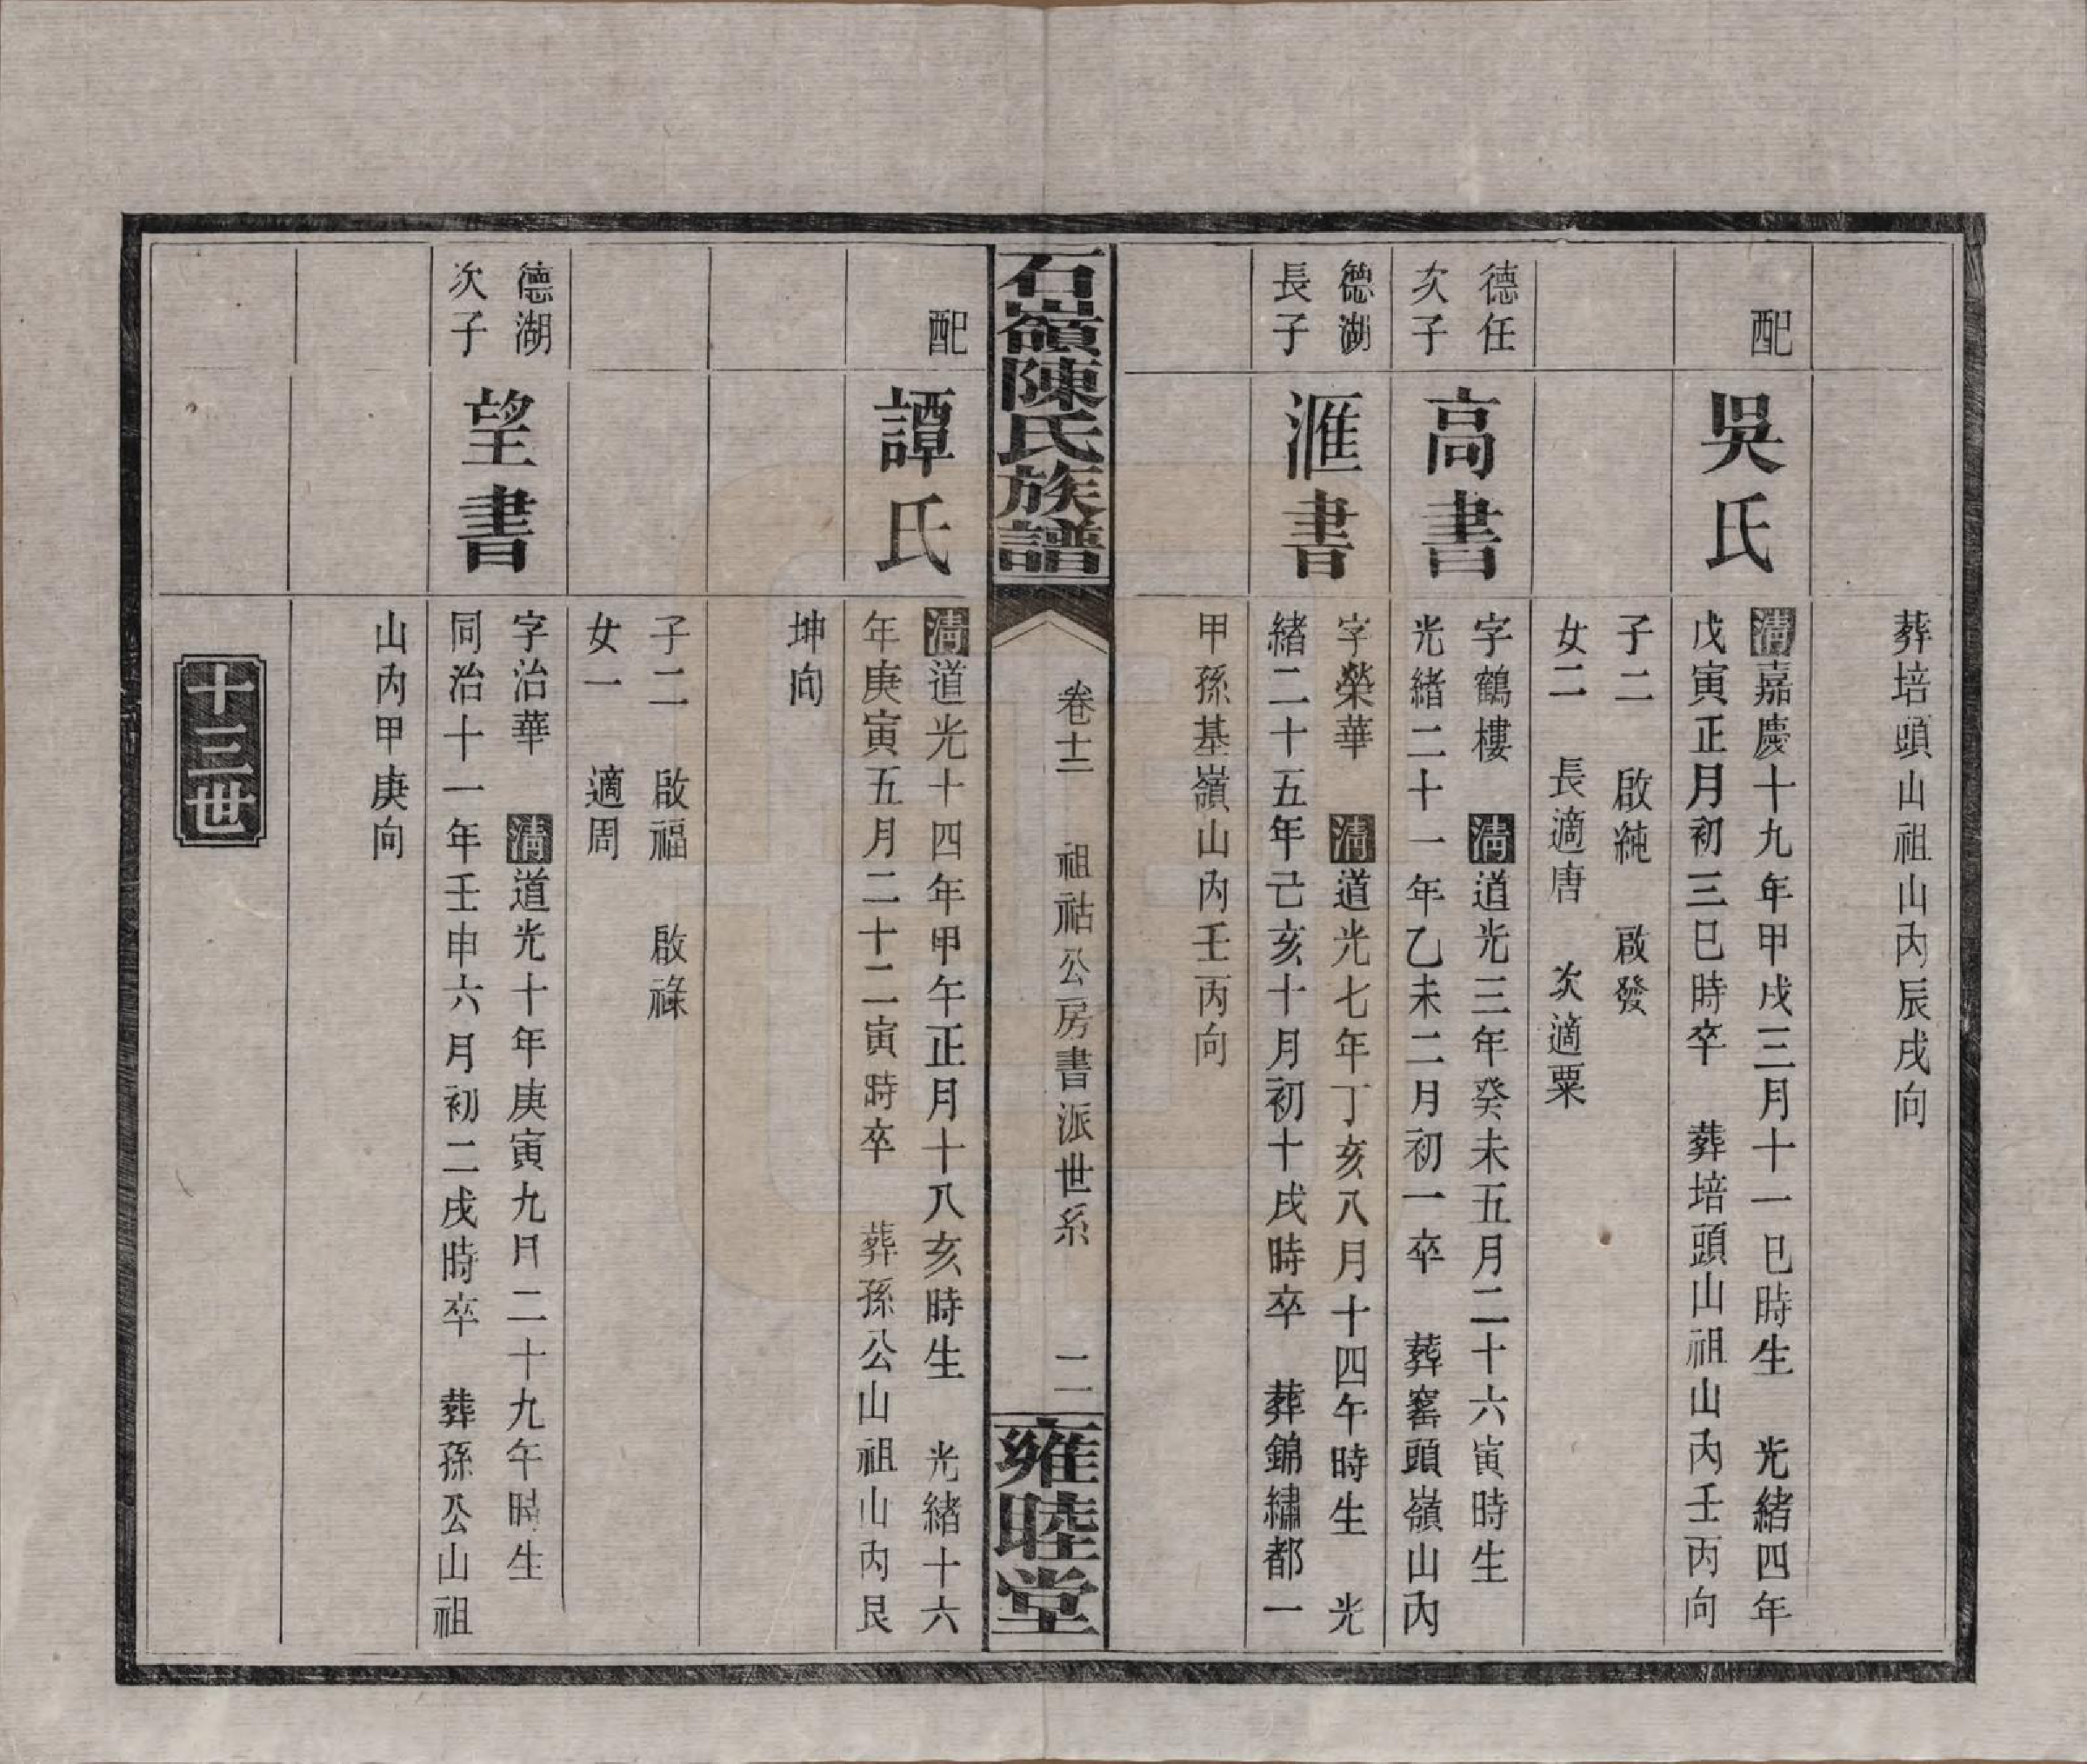 葬培頭山祖山內辰戌向
配
吳氏
清嘉慶十九年甲戌三月十一巳時生　光緒四年
戊寅正月初三巳時卒　葬培頭山祖山內壬丙向
子二　啟純　啟發
女二　長適唐　次適粟
德任
次子
高書
字鶴樓　清道光三年癸未五月二十六寅時生
光緒二十一年乙未二月初一卒　葬窰頭嶺山內
甲孫基嶺山內壬丙向
德湖
長子
滙書
字榮華　清道光七年丁亥八月十四午時生　光
緒二十五年己亥十月初十戌時卒　葬錦繡都一
石嶺陳氏族譜
卷十二　祖祜公房書派世系　二
雍睦堂
配
譚氏
清道光十四年甲午正月十八亥時生　光緒十六
年庚寅五月二十二寅時卒　葬孫公山祖山內艮
坤向
子二　啟福　啟祿
女一　適周
德湖
次子
望書
字治華　清道光十年庚寅九月二十九午時生
同治十一年壬申六月初二戌時卒　葬孫公山祖
山內甲庚向
十三世